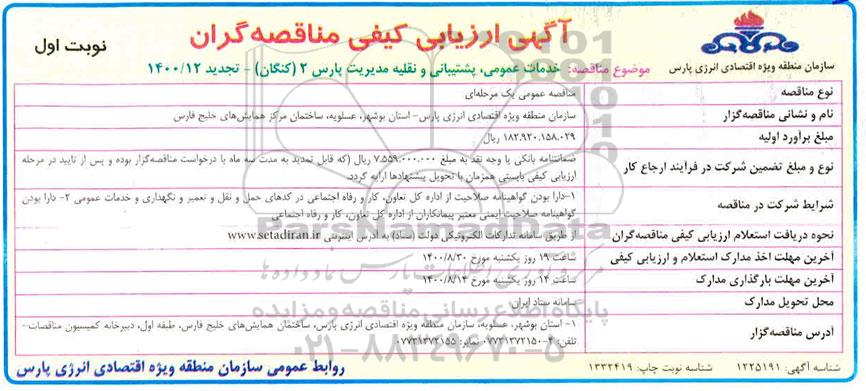 آگهی ارزیابی کیفی مناقصه‌گران
نوبت اول
سازمان منطقه ویژه اقتصادی انرژی پارس
موضوع مناقصه: خدمات عمومی، پشتیبانی و نقلیه مدیریت پارس ۲ (کنگان) - تجدید ۱۴۰۰/۱۲
نوع مناقصه
مناقصه عمومی یک مرحله‌ای
نام و نشانی مناقصه‌گزار
سازمان منطقه ویژه اقتصادی انرژی پارس- استان بوشهر، عسلویه، ساختمان مرکز همایش‌های خلیج فارس
مبلغ برآورد اولیه
۱۸۲.۹۲۰.۱۵۸.۰۲۹ ریال
نوع و مبلغ تضمین شرکت در فرآیند ارجاع کار
ضمانتنامه بانکی یا وجه نقد به مبلغ ۷.۵۵۹.۰۰۰.۰۰۰ ریال (که قابل تمدید به مدت سه ماه با درخواست مناقصه‌گزار بوده و پس از تایید در مرحله
ارزیابی کیفی بایستی همزمان با تحویل پیشنهادها ارایه گردد.
شرایط شرکت در مناقصه
۱-دارا بودن گواهینامه صلاحیت از اداره کل تعاون، کار و رفاه اجتماعی در کدهای حمل و نقل و تعمیر و نگهداری و خدمات عمومی ۲- دارا بودن
گواهینامه صلاحیت ایمنی معتبر پیمانکاران از اداره کل تعاون، کار و رفاه اجتماعی
نحوه دریافت استعلام ارزیابی کیفی مناقصه‌گران
از طریق سامانه تدارکات الکترونیکی دولت (ستاد) به آدرس اینترنتی www.setadiran.ir
آخرین مهلت اخذ مدارک استعلام و ارزیابی کیفی
ساعت ۱۹ روز یکشنبه مورخ ۱۴۰۰/۸/۳۰
آخرین مهلت بارگذاری مدارک
ساعت ۱۴ روز یکشنبه مورخ ۱۴۰۰/۸/۱۴
محل تحویل مدارک
سامانه ستاد ایران
آدرس مناقصه‌گزار
۱- استان بوشهر، عسلویه، سازمان منطقه ویژه اقتصادی انرژی پارس، ساختمان همایش‌های خلیج فارس، طبقه اول، دبیرخانه کمیسیون مناقصات-
تلفن: ۴-۰۷۷۳۱۳۷۲۱۵۰ نمابر: ۰۷۷۳۱۳۷۲۱۵۵
شناسه آگهی: ۱۲۲۵۱۹۱ شناسه نوبت چاپ: ۱۳۳۲۴۱۹
روابط عمومی سازمان منطقه ویژه اقتصادی انرژی پارس
ParsNamadData
پایگاه اطلاع رسانی مناقصه و مزایده
۰۲۱-۸۸۳۴۹۶۷۰-۵